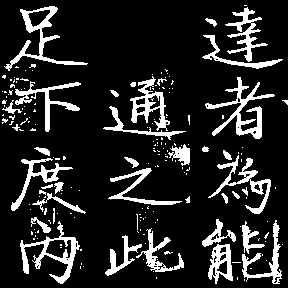 達者為能
通之此
足下度內